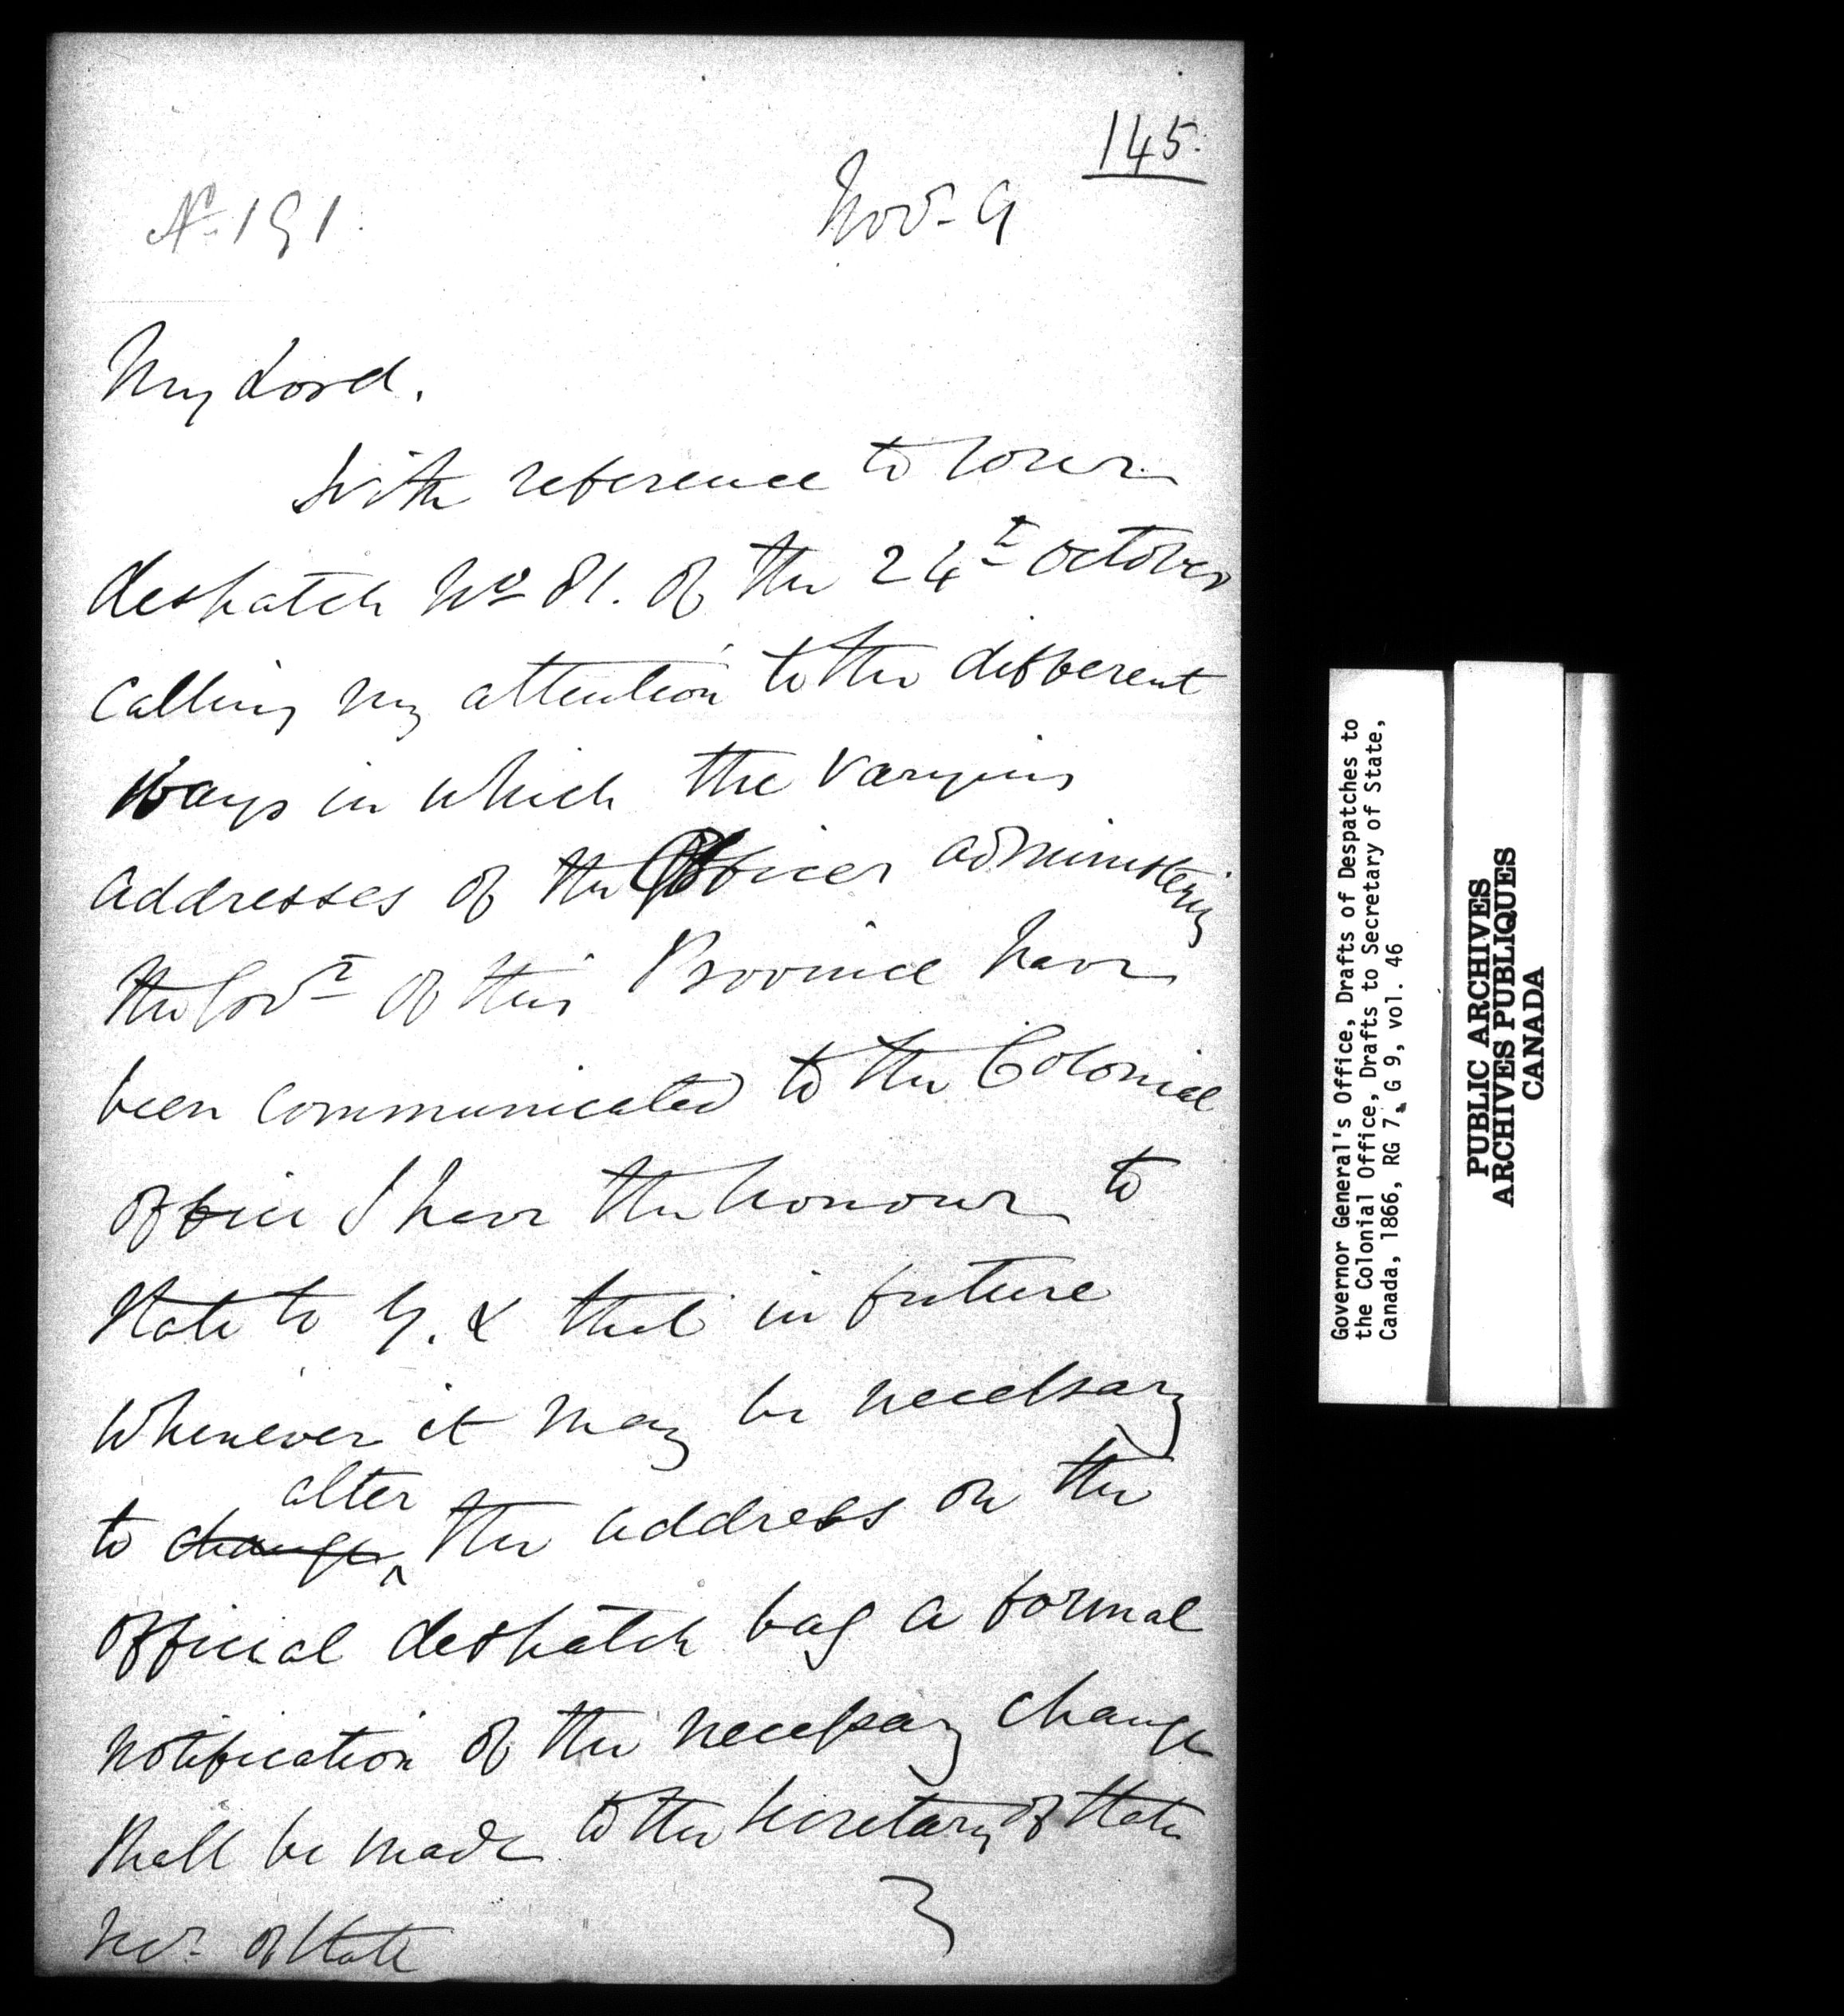 145.
No. 191.
Nov- 9
My Lord.
With reference to Your
despatch No 81. of the 24th October
calling my attention to the different
ways in which the varying
addresses of the Officer administering
the Govt of this Province have
been communicated to the Colonial
Office I have the honour to
state to Y. L that in future
whenever it may be necessary
alter
to change ^ the address on the
official despatch bag a formal
notification of the necessary change
shall be made to the Secretary of State
Secy of State
Governor General's Office, Drafts of Despatches to
the Colonial Office, Drafts to Secretary of State,
Canada, 1866, RG 7, G 9, vol. 46
PUBLIC ARCHIVES
ARCHIVES PUBLIQUES
CANADA